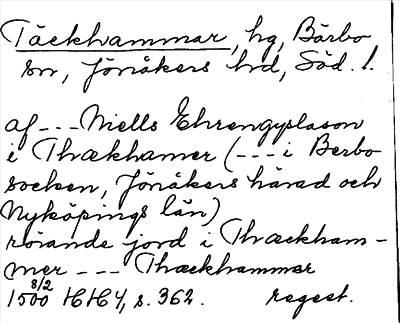 Täckhammar, hg, Bärbo
sn, Jönåkers hd, Söd. l.
af --- Niells Ehrengyslason
i Thækhamer (--- i Berbo
socken, Jönåkers härad och
Nyköpings län)
rörande jord i Thækham-
mer --- Thækhammar
1500 8/2 HH 4, s. 362. regest.